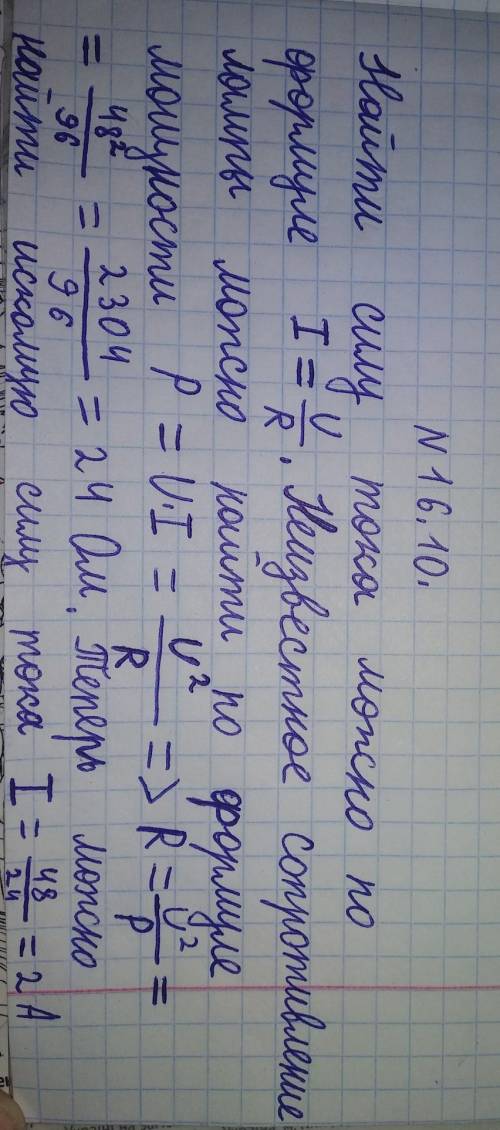 N 16.10.
Найти силу тока можно по
формуле I = U/R. Неизвестное сопротивление
лампы можно найти по формуле
мощности P = U·I = U²/R => R = U²/P =
= 48²/96 = 2304/96 = 24 Ом. Теперь можно
найти искомую силу тока I = 48/24 = 2 А